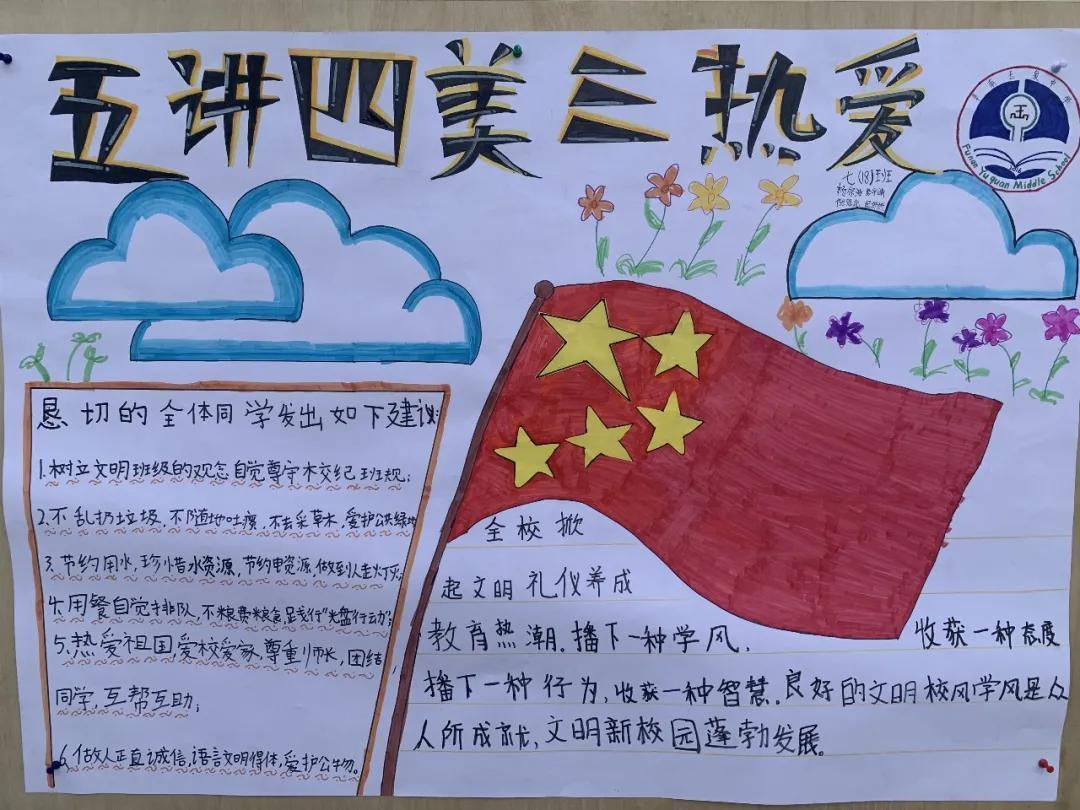 五讲四美三热爱
Funan Yuquan Middle School
七(18)班
恳切的全体同学发出如下建议:
1.树立文明班级的观念自觉尊守校纪班规;
2.不乱扔垃圾,不随地吐痰,不去采草木,爱护公共绿地
3.节约用水,珍惜水资源,节约电资源,做到人走灯灭;
4.用餐自觉排队,不粮费粮食,践行“光盘行动”;
5.热爱祖国爱校爱家,尊重师长,团结
同学,互帮互助;
6.做人正直诚信,语言文明得体,爱护公物。
全校掀
起文明礼仪养成
教育热潮.播下一种学风, 收获一种态度
播下一种行为,收获一种智慧.良好的文明校风学风是众
人所成就,文明新校园蓬勃发展。